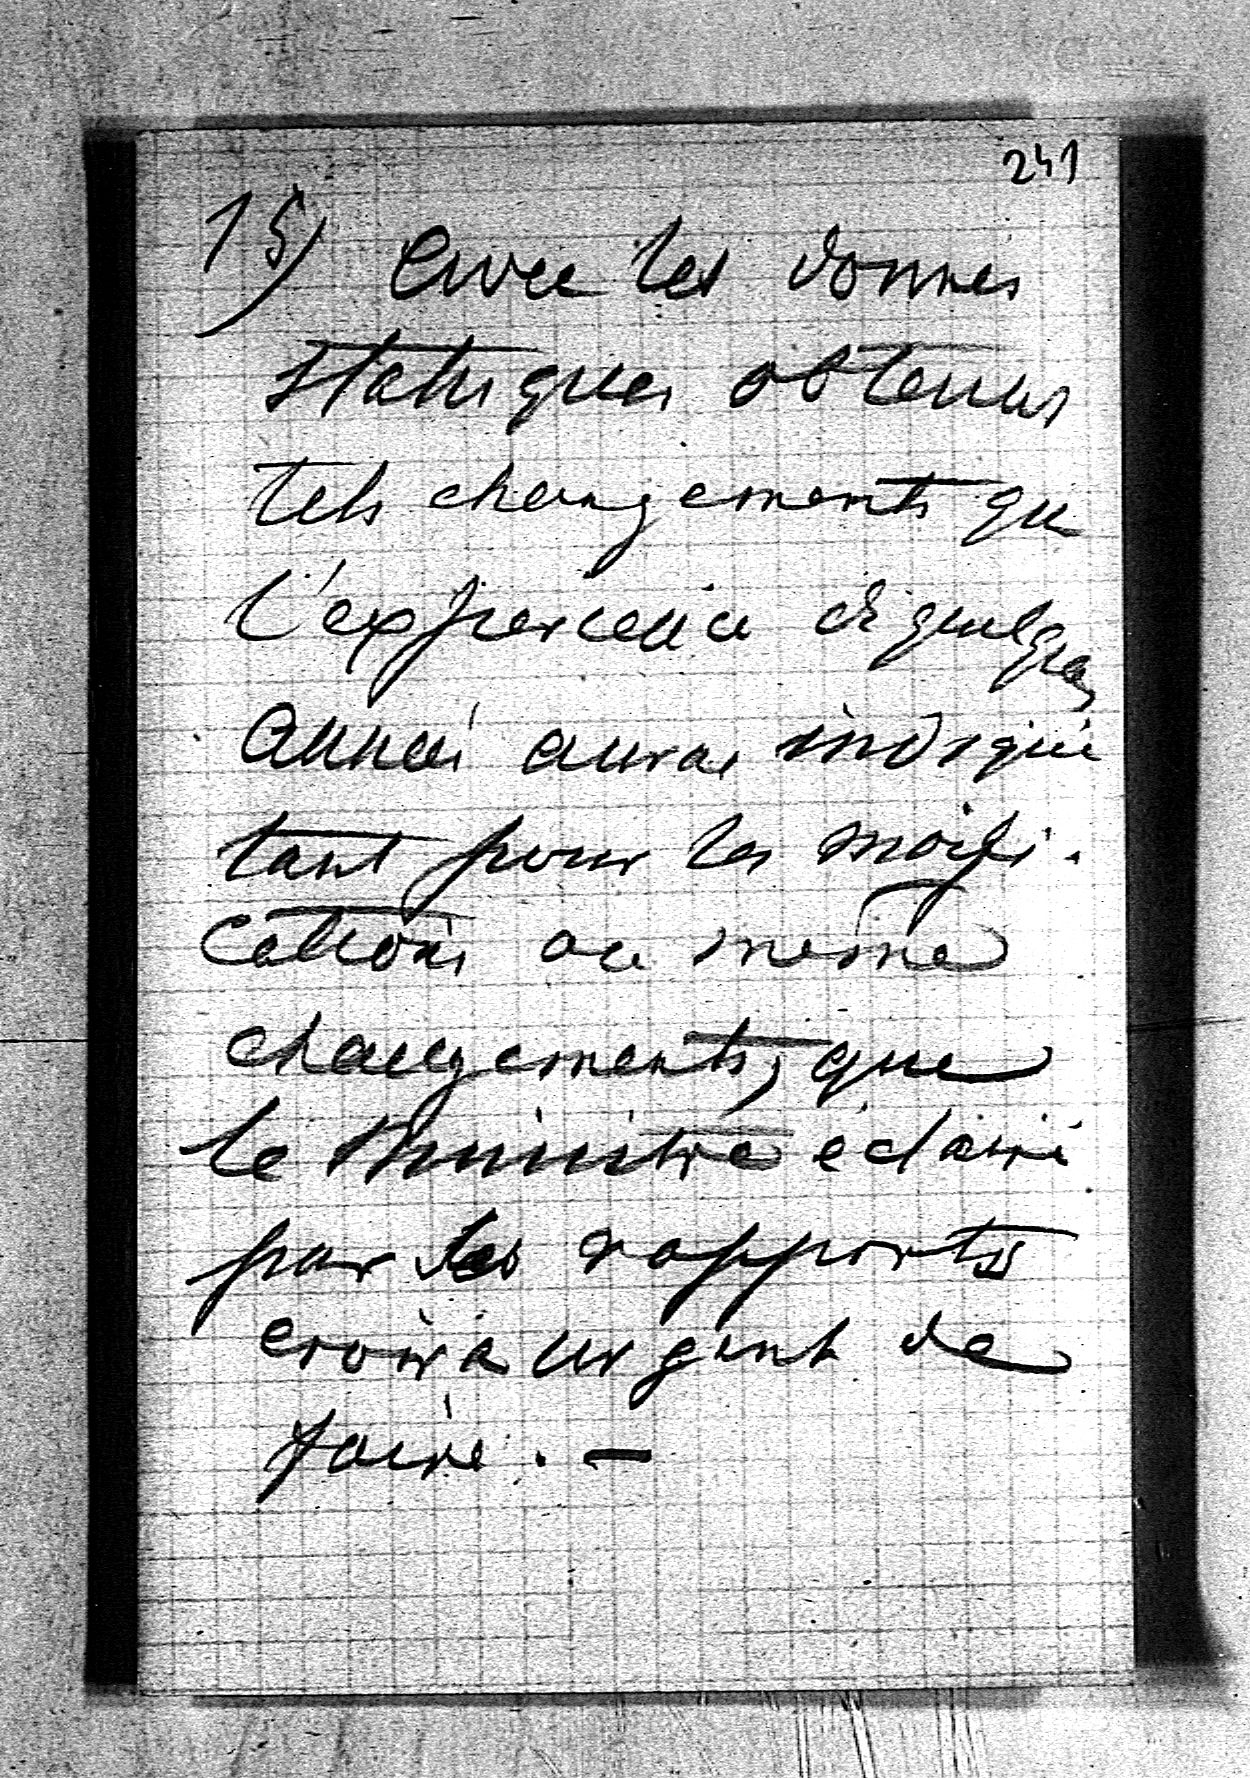 241
15) avec les donnes
statiques obtenus
tels changements que
l'experience de quelques
années auras indiqué
tant pour les moifi-
cations ou même
changements, que
le Ministre éclairé
par les rapports
croira urgent de
faire. —